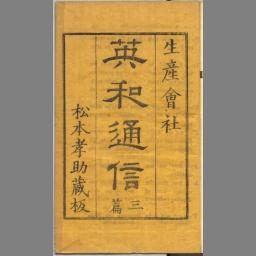 生產會社
英和通信
三篇
松本孝助藏板